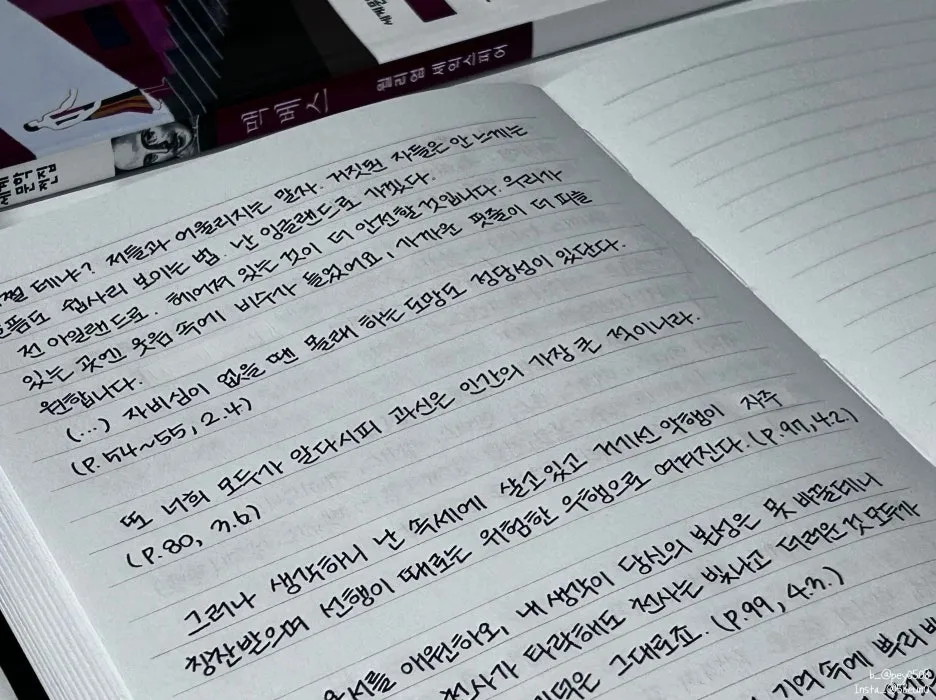 맥베스
윌리엄 셰익스피어
세계
문학
전집
쩔 테냐? 저들과 어울리지는 말자. 거짓된 자들은 안 느끼는
슬픔도 쉽사리 보이는 법. 난 잉글랜드로 가겠다.
전 아일랜드로. 헤어져 있는 것이 더 안전할 것입니다. 우리가
있는 곳엔 웃음 속에 비수가 들었어요, 가까운 핏줄이 더 피를
원합니다.
(...) 자비심이 없을 땐 몰래 하는 도망도 정당성이 있단다.
(P.54~55, 2.4)
또 너희 모두가 알다시피 과신은 인간의 가장 큰 적이니라.
(P.80, 3.6)
그러나 생각하니 난 속세에 살고있고 거기선 악행이 자주
칭찬받으며 선행이 때로는 위험한 우행으로 여겨진다. (P.97, 4.2.)
용서를 애원하오, 내 생각이 당신의 본성은 못 바꿀테니
천사가 타락해도 천사는 빛나고 더러운 것 모두가
미덕은 그대로죠. (P.99, 4.3.)
기억 속에 뿌리